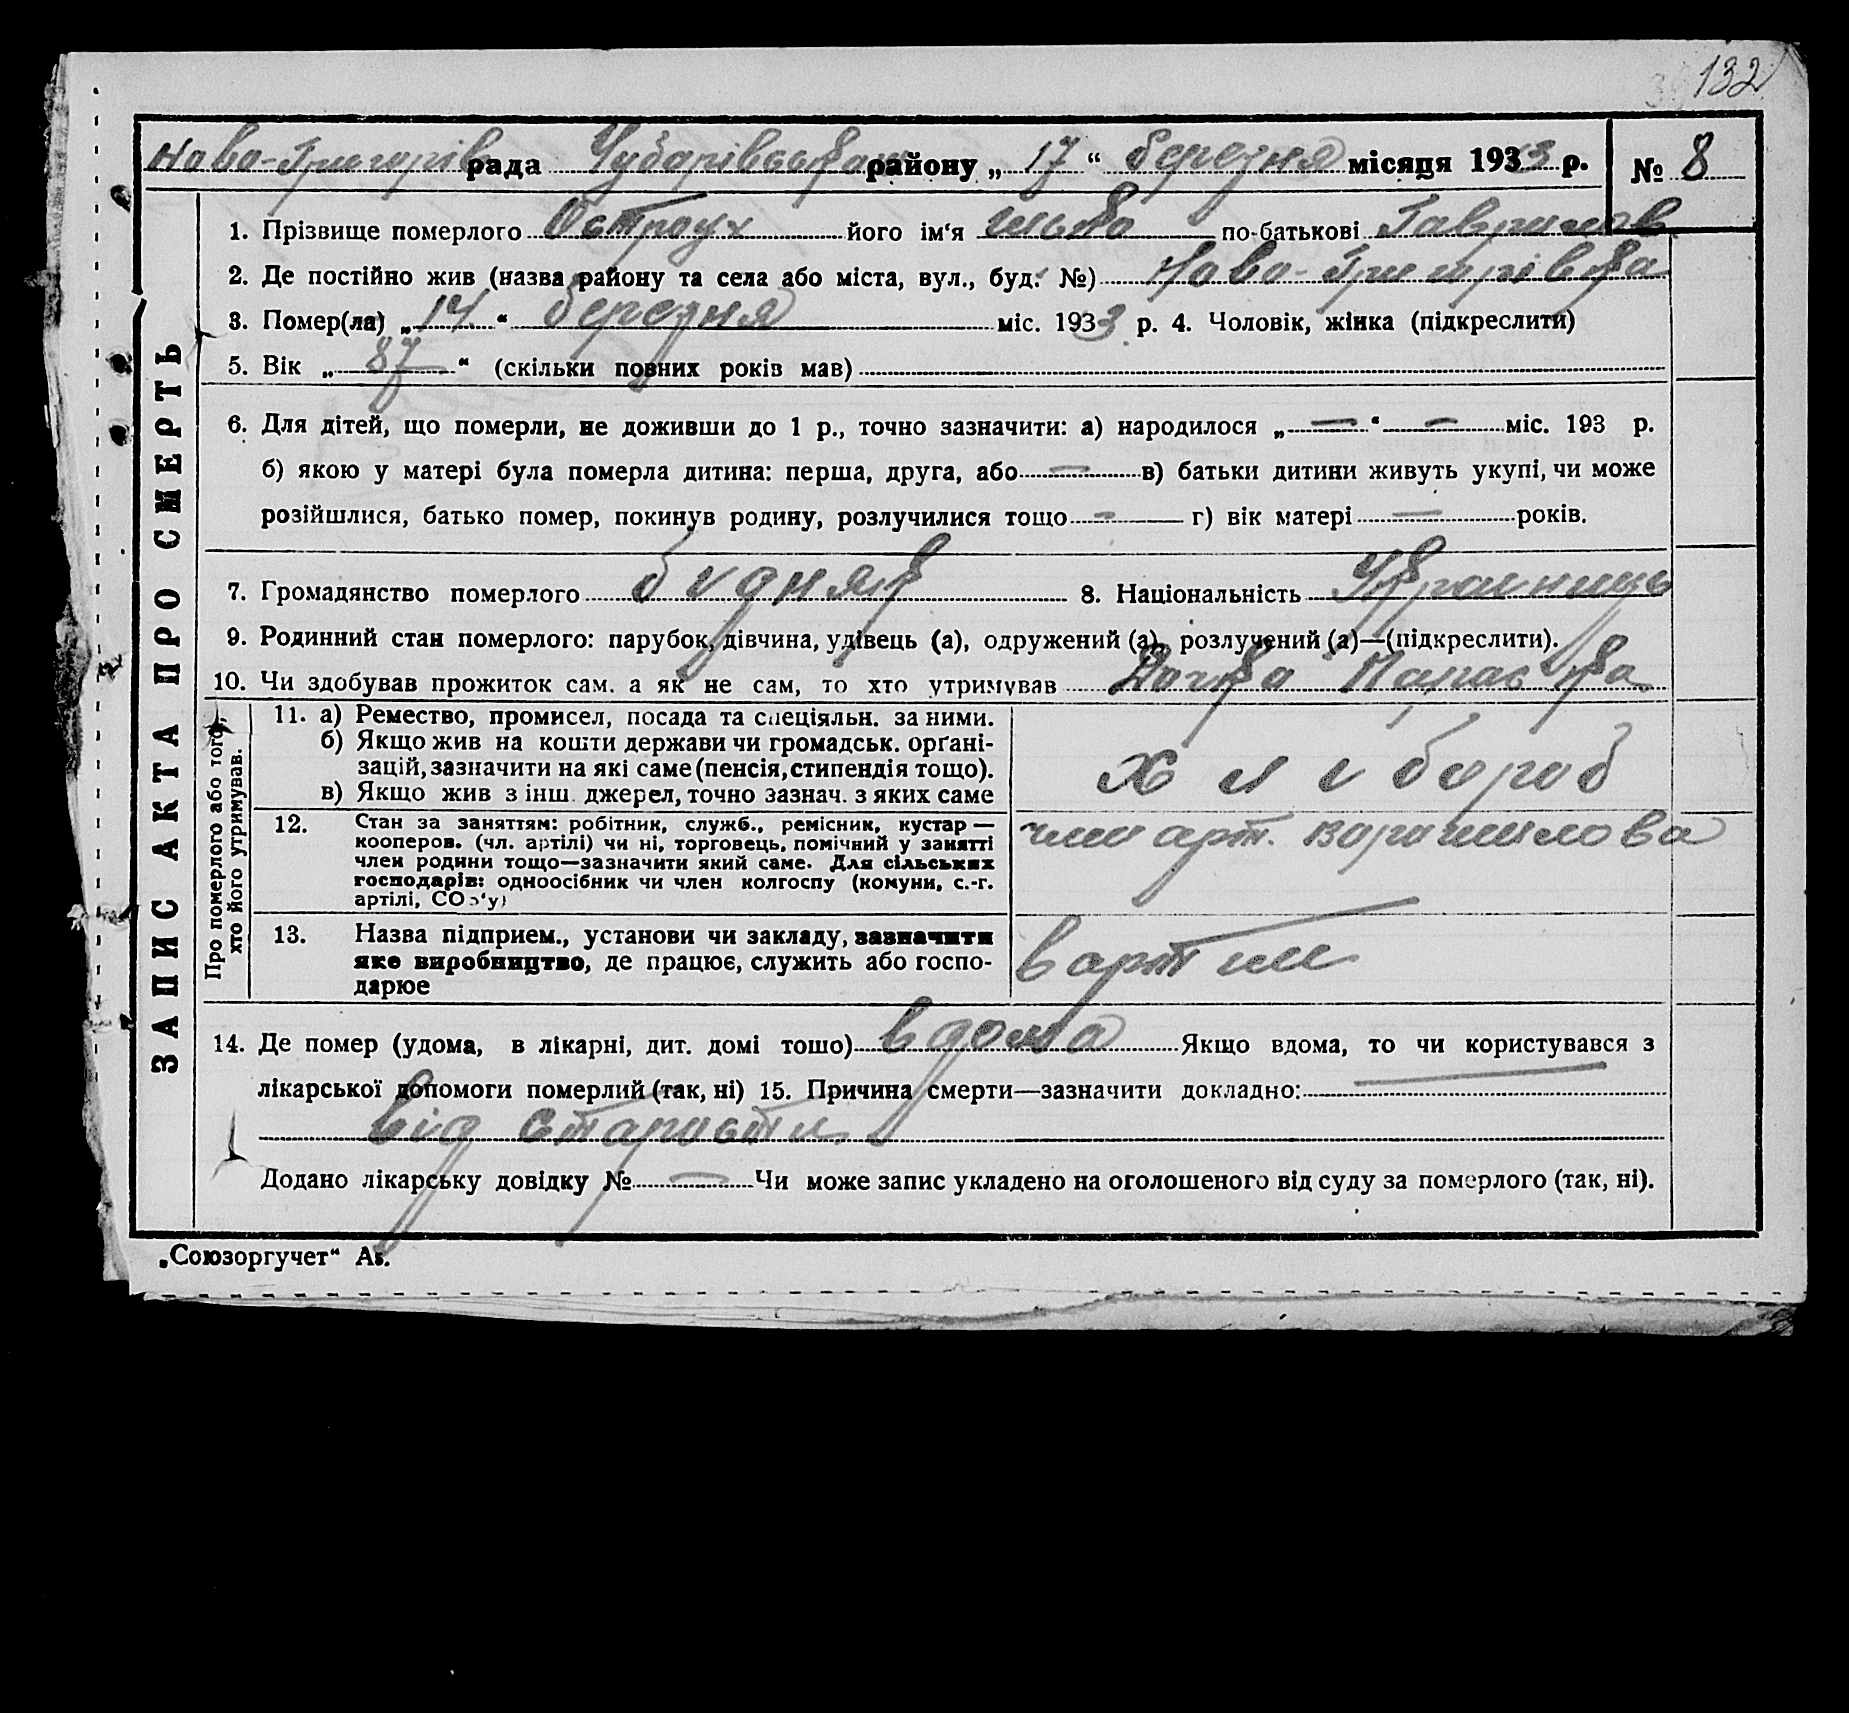 132
Ново-Григорів рада Чубарівського району „ 17 “ березня місяця 1933 р. № 8
1. Прізвище померлого Остроух його ім‘я по-батькові Гаврилов
2. Де постійно жив (назва району та села або міста, вул., буд. №) Ново-Григорівка
3. Помер(ла) „ 14 “ березня міс. 1933 р. 4. Чоловік, жінка (підкреслити)
5. Вік „ 87 “ (скільки повних років мав)
6. Для дітей, що померли, не доживши до 1 р., точно зазначити: а) народилося „ — “ — міс. 193 р.
б) якою у матері була померла дитина: перша, друга, або — в) батьки дитини живуть укупі, чи може
розійшлися, батько помер, покинув родину, розлучилися тощо — г) вік матері — років.
7. Громадянство померлого бидняк 8. Національність Українець
9. Родинний стан померлого: парубок, дівчина, удівець (а), одружений (а), розлучений (а)—(підкреслити).
10. Чи здобував прожиток сам, а як не сам, то хто утримував Дочка Параска
ЗАПИС АКТА ПРО СМЕРТЬ
Про померлого або того, хто його утримував.
11. а) Ремество, промисел, посада та спеціяльн. за ними.
б) Якщо жив на кошти держави чи громадськ. орґані-
зацій, зазначити на які саме (пенсія, стипендія тощо).
в) Якщо жив з інш. джерел, точно зазнач. з яких саме
хлібороб
12. Стан за заняттям: робітник, служб., ремісник, кустар —
кооперов. (чл. артілі) чи ні, торговець, помічний у занятті
член родини тощо—зазначити який саме. Для сільських
господарів: одноосібник чи член колгоспу (комуни, с.-г.
артілі, СОЗ‘у)
член арт. Ворошилова
13. Назва підприєм., установи чи закладу, зазначити
яке виробництво, де працює, служить або госпо-
дарюе
в артили
14. Де помер (удома, в лікарні, дит. домі тошо) вдома Якщо вдома, то чи користувався з
лікарської допомоги померлий (так, ні) 15. Причина смерти—зазначити докладно:
від старости
Додано лікарську довідку № — Чи може запис укладено на оголошеного від суду за померлого (так, ні).
„Союзоргучет“ А5.